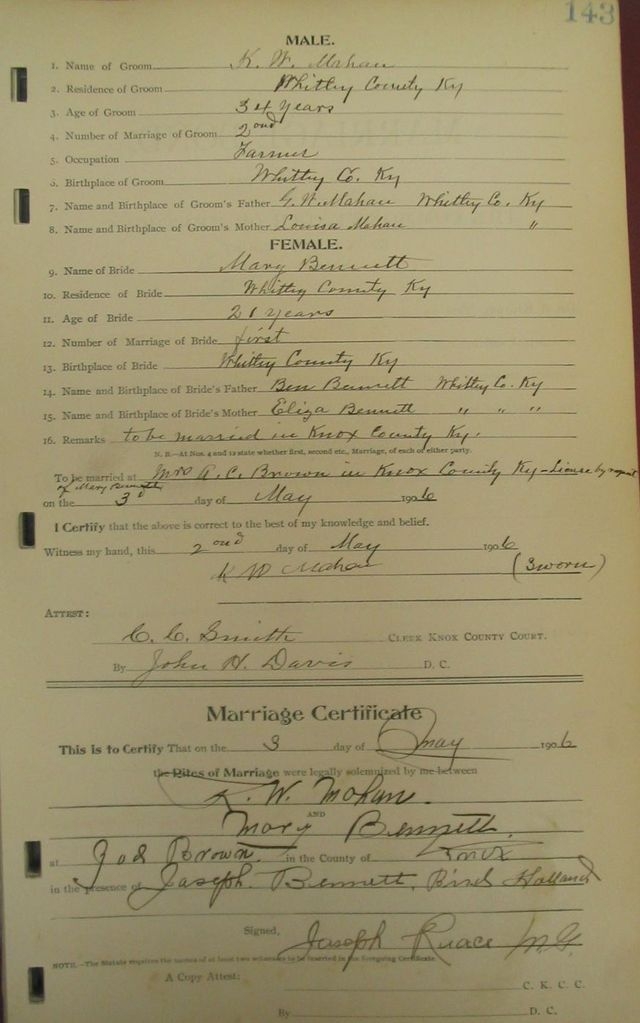 143
MALE.
1. Name of Groom K. W. Mahan
2. Residence of Groom Whitley County Ky
3. Age of Groom 34 years
4. Number of Marriage of Groom 2ond
5. Occupation Farmer
6. Birthplace of Groom Whitley Co. Ky
7. Name and Birthplace of Groom's Father G. W. Mahan Whitley Co. Ky
8. Name and Birthplace of Groom's Mother Louisa Mahan "
FEMALE.
9. Name of Bride Mary Bennett
10. Residence of Bride Whitley County Ky
11. Age of Bride 21 years
12. Number of Marriage of Bride first
13. Birthplace of Bride Whitley County Ky
14. Name and Birthplace of Bride's Father Ben Bennett Whitley Co. Ky
15. Name and Birthplace of Bride's Mother Eliza Bennett " " "
16. Remarks to be married in Knox County Ky.
N. B.—At Nos. 4 and 12 state whether first, second etc., Marriage, of each or either party.
To be married at Mrs A. C. Brown in Knox County Ky - License by request
of Mary Bennett
on the 3d day of May 1906
I Certify that the above is correct to the best of my knowledge and belief.
Witness my hand, this 2ond day of May 1906
K W Mahan (Sworn)
ATTEST:
C. C. Smith CLERK KNOX COUNTY COURT.
By John H. Davis D. C.
Marriage Certificate
This is to Certify That on the 3 day of May 1906
the Rites of Marriage were legally solemnized by me between
K. W. Mahan.
AND
Mary Bennett.
at Brown. in the County of Knox
in the presence of Joseph. Bennett, Holland
Signed, Joseph M. G.
NOTE.—The Statute requires the names of at least two witnesses to be inserted in the foregoing Certificate.
A Copy Attest: C. K. C. C.
By D. C.